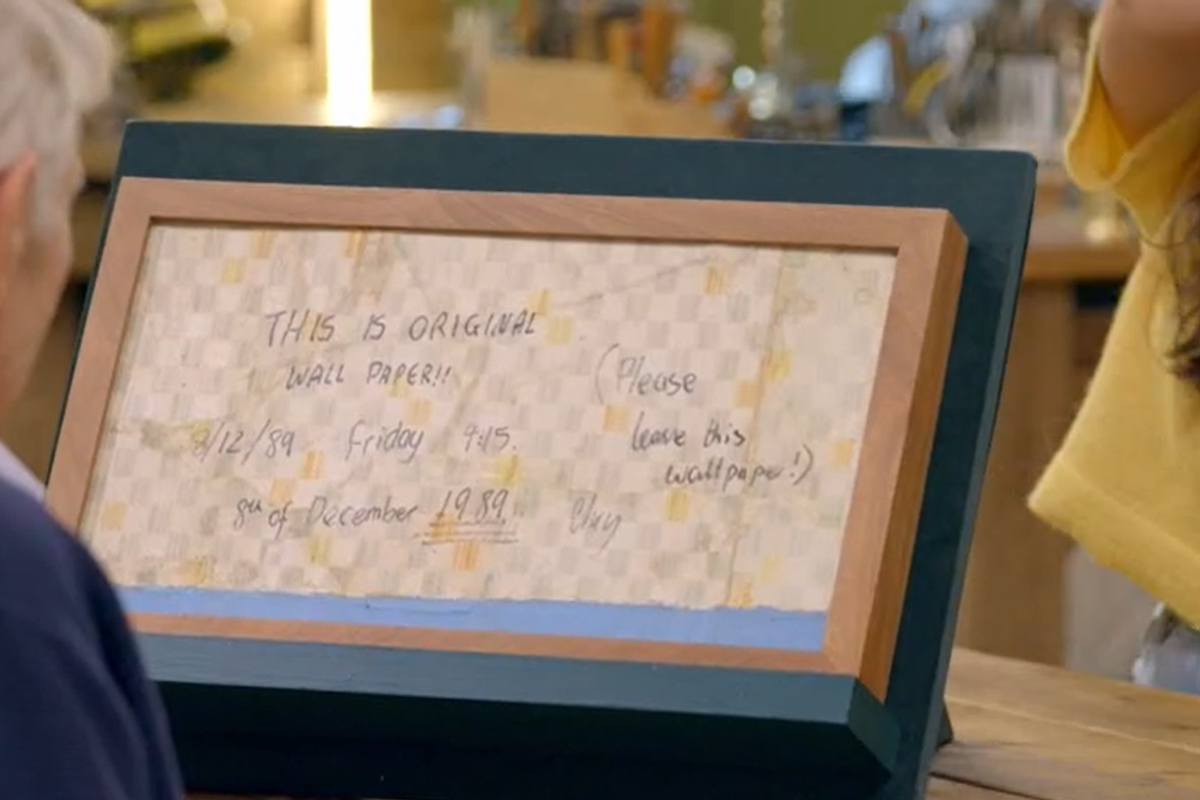 THIS IS ORIGINAL
WALL PAPER!!
8/12/89 Friday 9:15.
8th of December 1989
(Please
leave this
wallpaper!)